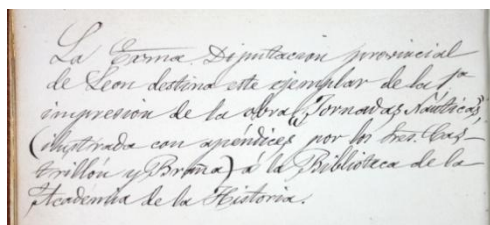 La Exma Diputacion provincial
de Leon destina este ejemplar de la 1ª
impresion de la obra "Jornadas Náuticas"
(ilustrada con apéndices por los Sres. Cas-
trillón y Braña) á la Biblioteca de la
Academia de la Historia.